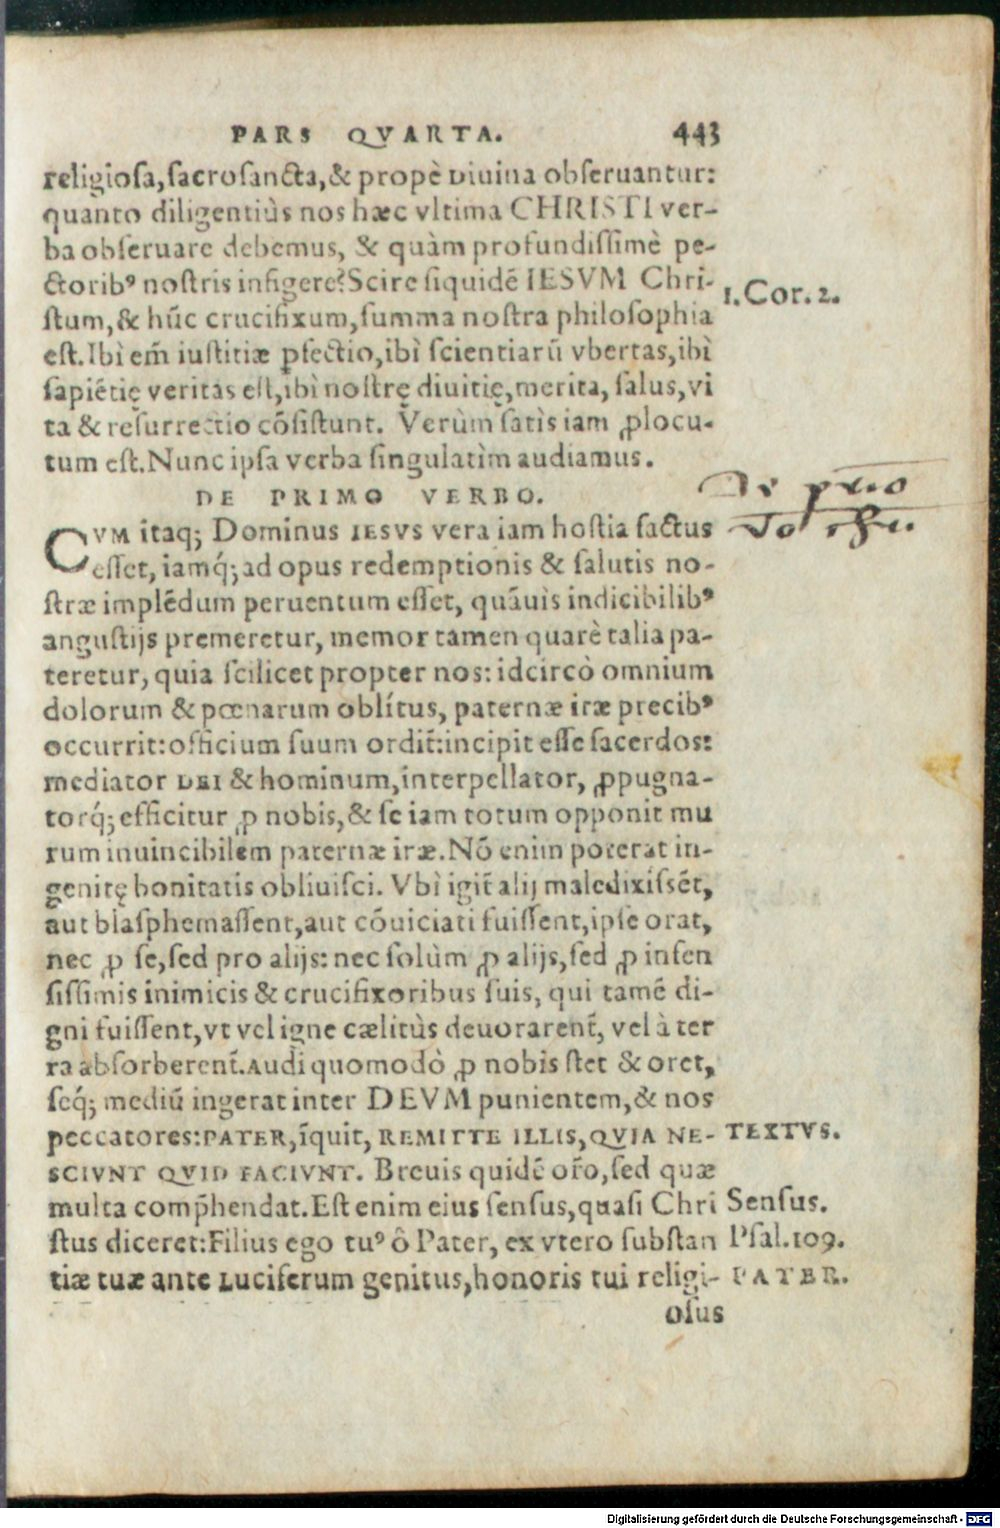 PARS QVARTA. 443
religiosa, sacrosancta, & propè diuina obseruantur:
quanto diligentiùs nos hæc vltima CHRISTI ver-
ba obseruare debemus, & quàm profundissimè pe-
ctorib⁹ nostris infigere? Scire siquidē IESVM Chri-
1. Cor. 2.
stum, & hūc crucifixum, summa nostra philosophia
est. Ibi em̄ iustitiæ ꝑfectio, ibì scientiarū vbertas, ibì
sapiētię veritas est, ibì nostrę diuitię, merita, salus, vi
ta & resurrectio cōsistunt. Verùm satìs iam ꝓlocu-
tum est. Nunc ipsa verba singulatìm audiamus.
DE PRIMO VERBO.
CVM itaq; Dominus IESVS vera iam hostia factus
esset, iamq́; ad opus redemptionis & salutis no-
stræ implēdum peruentum esset, quāuìs indicibilib⁹
angustijs premeretur, memor tamen quarè talia pa-
teretur, quia scilicet propter nos: idcircò omnium
dolorum & pœnarum oblítus, paternæ iræ precib⁹
occurrit: officium suum ordit̄: incipit esse sacerdos:
mediator DEI & hominum, interpellator, ꝓpugna-
torq́; efficitur ꝓ nobis, & se iam totum opponit mu
rum inuincibilem paternæ iræ. Nō enim poterat in-
genitę bonitatis obliuisci. Vbì igit̄ alij maledixissēt,
aut blasphemassent, aut cōuiciati fuissent, ipse orat,
nec ꝓ se, sed pro alijs: nec solùm ꝓ alijs, sed ꝓ infen
sissimis inimicis & crucifixoribus suis, qui tamē di-
gni fuissent, vt vel igne cælitùs deuorarent̄, vel à ter
ra absorberent̄. Audi quomodò ꝓ nobis stet & oret,
seq́; mediū ingerat inter DEVM punientem, & nos
peccatores: PATER, īquit, REMITTE ILLIS, QVIA NE-
TEXTVS.
SCIVNT QVID FACIVNT. Breuis quidē or̄o, sed quæ
multa comp̄hendat. Est enim eius sensus, quasi Chri
Sensus.
stus diceret: Filius ego tu⁹ ô Pater, ex vtero substan
Psal. 109.
tiæ tuæ ante Luciferum genitus, honoris tui religi-
PATER.
osus
Digitalisierung gefördert durch die Deutsche Forschungsgemeinschaft - DFG